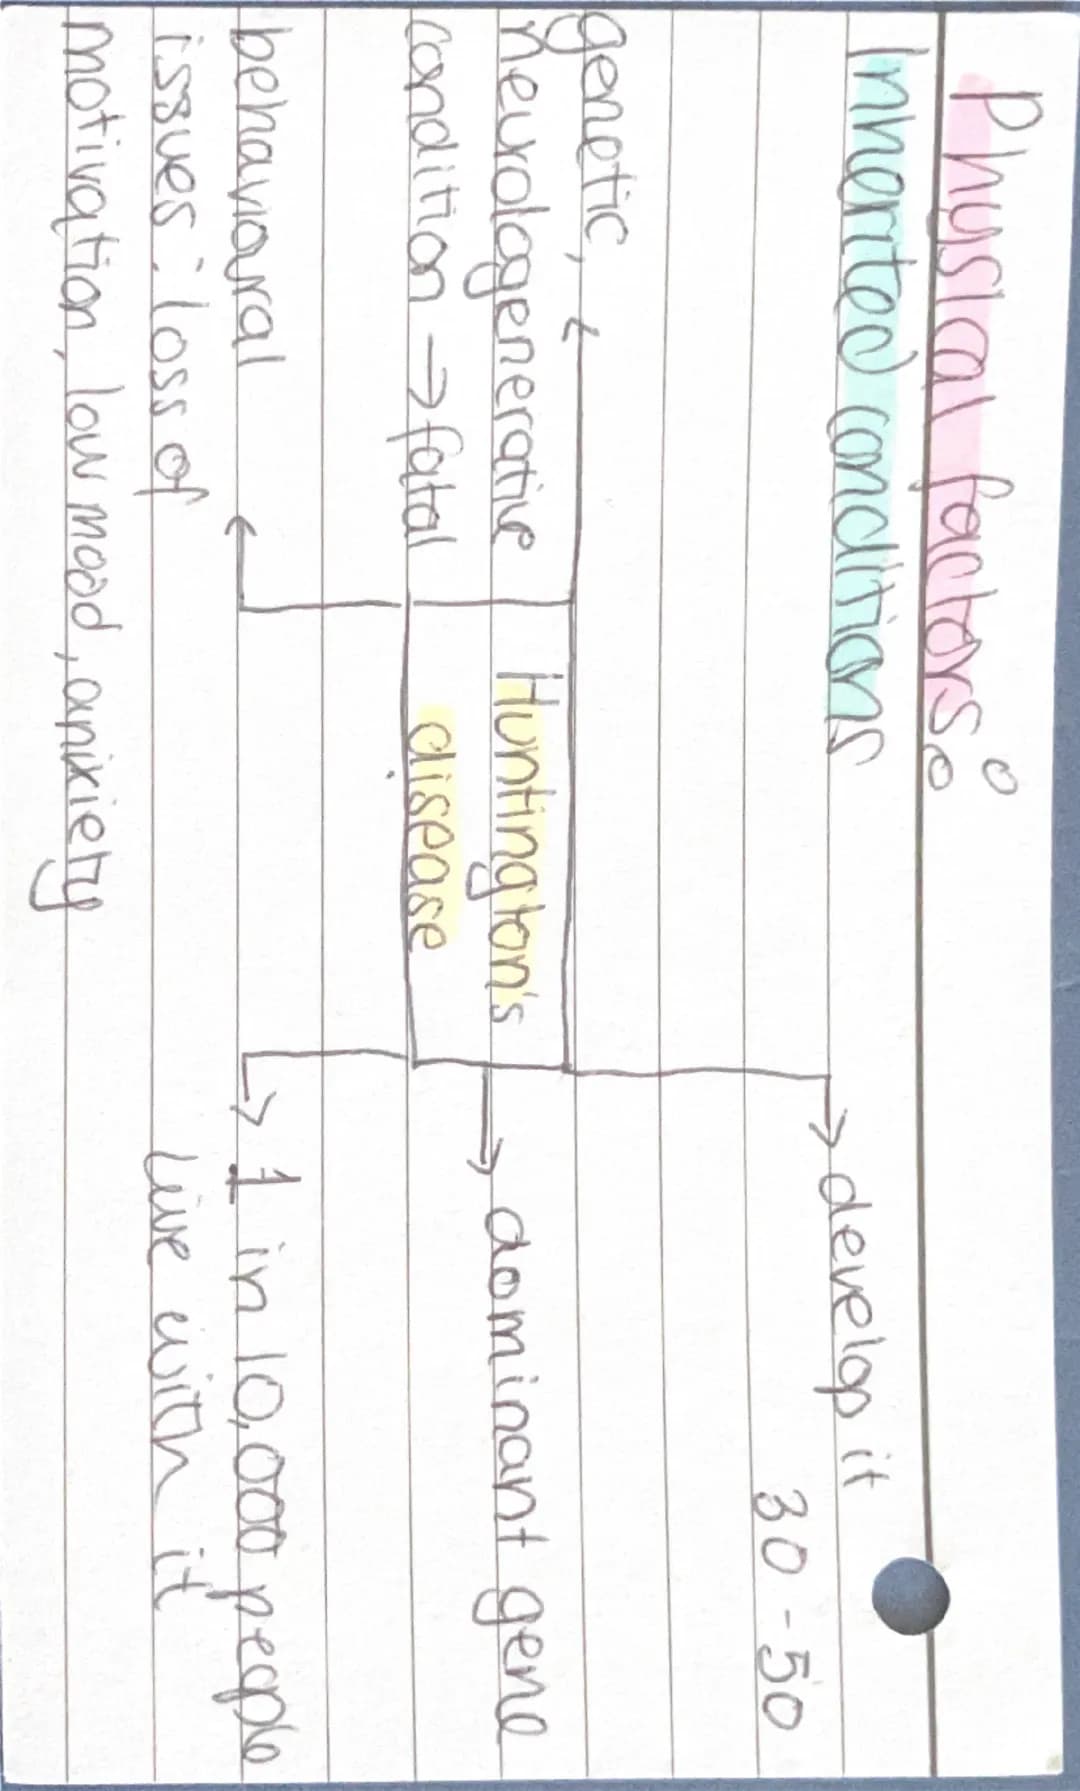 Physical factors:
Inherited conditions:
→ develop it
30-50
genetic,
neurologenerative
condition → fatal
Huntington's
disease
→ dominant gene
behavioural
issues: loss of
motivation, low mood, anixiety
→ 1 in 10,000 people
live with it